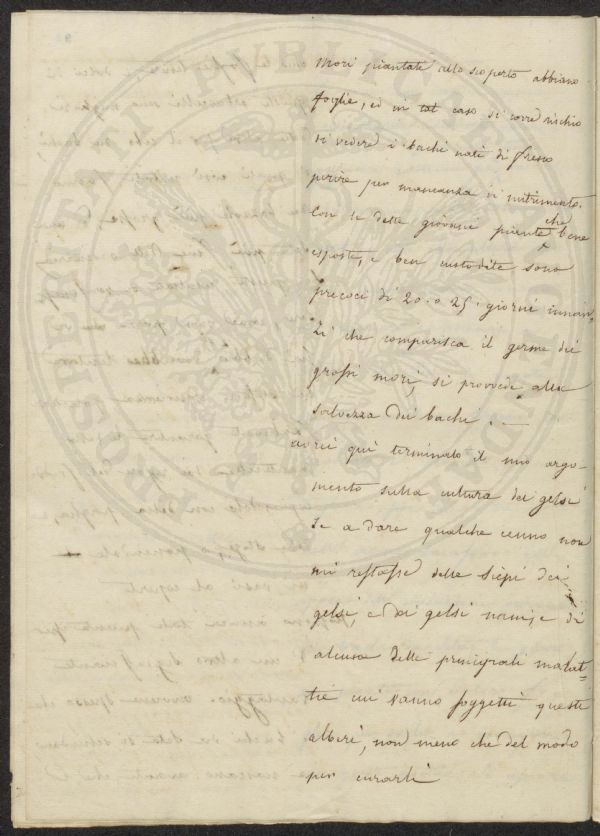 mori piantati allo scoperto abbiano
foglie, ed in tal caso si corre rischio
di vedere i bachi nati di fresco
perire per mancanza di nutrimento.
Con le dette giovani piante che bene
esposte, e ben custodite sono
precoci di 20. o 25. giorni innan-
zi che comparisca il germe dei
grossi mori, si provvede alla
salvezza dei bachi. —
avrei quì terminato il mio argo-
mento sulla cultura dei gelsi
se a dare qualche cenno non
mi restasse delle siepi dei
gelsi, e dei gelsi nani, e di
alcune delle principali malat-
tie cui vanno soggetti questi
alberi, non meno che del modo
per curarli